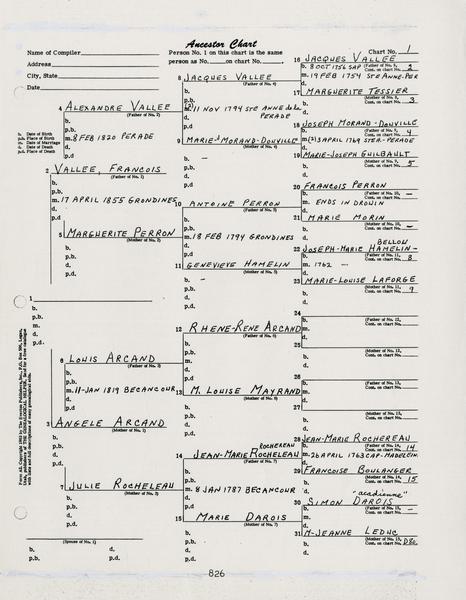 Ancestor Chart
Name of Compiler
Address
City, State
Date
Person No. 1 on this chart is the same
person as No. on chart No.
Chart No. 1
16 JACQUES VALLEE
(Father of No. 8,
Cont. on chart No. 2
b. 8 OCT 1756 SAP
m. 19 FEB 1754 STE ANNE-PER
8 JACQUES VALLEE
(Father of No. 4)
17 MARGHERITE TESSIER
(Mother of No. 8,
Cont. on chart No. 3
b.
p.b.
m. (2) 11 NOV 1794 STE ANNE de la
PERADE
d.
p.d.
4 ALEXANDRE VALLEE
(Father of No. 2)
b. Date of Birth
p.b. Place of Birth
m. Date of Marriage
d. Date of Death
p.d. Place of Death
b.
p.b.
m. 8 FEB 1820 PERADE
d.
p.d
18 JOSEPH MORAND-DOUVILLE
(Father of No. 9,
Cont. on chart No. 4
m. (2) 3 APRIL 1769 STE A-PERADE
9 MARIE-J MORAND-DOUVILLE
(Mother of No. 4)
19 MARIE-JOSEPH GUILBAULT
(Mother of No. 9,
Cont. on chart No. 5
2 VALLEE, FRANCOIS
(Father of No. 1)
b.
p.b.
m. 17 APRIL 1855 GRONDINES
d.
p.d
20 FRANCOIS PERRON
(Father of No. 10,
Cont. on chart No. -
m. ENDS IN DROUIN
10 ANTOINE PERRON
(Father of No. 5)
21 MARIE MORIN
(Mother of No. 10,
Cont. on chart No. -
b.
p.b.
m. 18 FEB 1794 GRONDINES
d.
p.d.
5 MARGHERITE PERRON
(Mother of No. 2)
b.
p.b.
d.
p.d.
BELLOU
22 JOSEPH-MARIE HAMELIN-
(Father of No. 11,
Cont. on chart No. 8
m. 1762 -
11 GENEVIEVE HAMELIN
(Mother of No. 5)
23 MARIE-LOUISE LAFORGE
(Mother of No. 11,
Cont. on chart No. 9
1
b.
p.b.
m.
d.
p.d.
24
(Father of No. 12,
Cont. on chart No.
12 RHENE-RENE ARCAND
(Father of No. 6)
25
(Mother of No. 12,
Cont. on chart No.
6 LOUIS ARCAND
(Father of No. 3)
b.
p.b.
m. 11-JAN 1819 BECANCOUR
d.
p.d
26
(Father of No. 13,
Cont. on chart No.
13 M. LOUISE MAYRAND
(Mother of No. 6)
27
(Mother of No. 13,
Cont. on chart No.
3 ANGELE ARCAND
(Mother of No. 1)
b.
p.b.
d.
p.d.
28 JEAN-MARIE ROCHEREAU
(Father of No. 14,
Cont. on chart No. 14
m. 26 APRIL 1763 CAP-MADELEIN.
ROCHEREAU
14 JEAN-MARIE ROCHELEAU
(Father of No. 7)
29 FRANCOISE BOULANGER
(Mother of No. 14,
Cont. on chart No. 15
b.
p.b.
m. 8 JAN 1787 BECANCOUR
d.
p.d.
7 JULIE ROCHELEAU
(Mother of No. 3)
b.
p.b.
d.
p.d.
"acadienne"
30 SIMON DAROIS
(Father of No. 15,
Cont. on chart No. -
15 MARIE DAROIS
(Mother of No. 7)
31 M-JEANNE LEDUC
(Mother of No. 15,
Cont. on chart No.
(Spouse of No. 1)
b.
p.b.
d.
p.d.
826